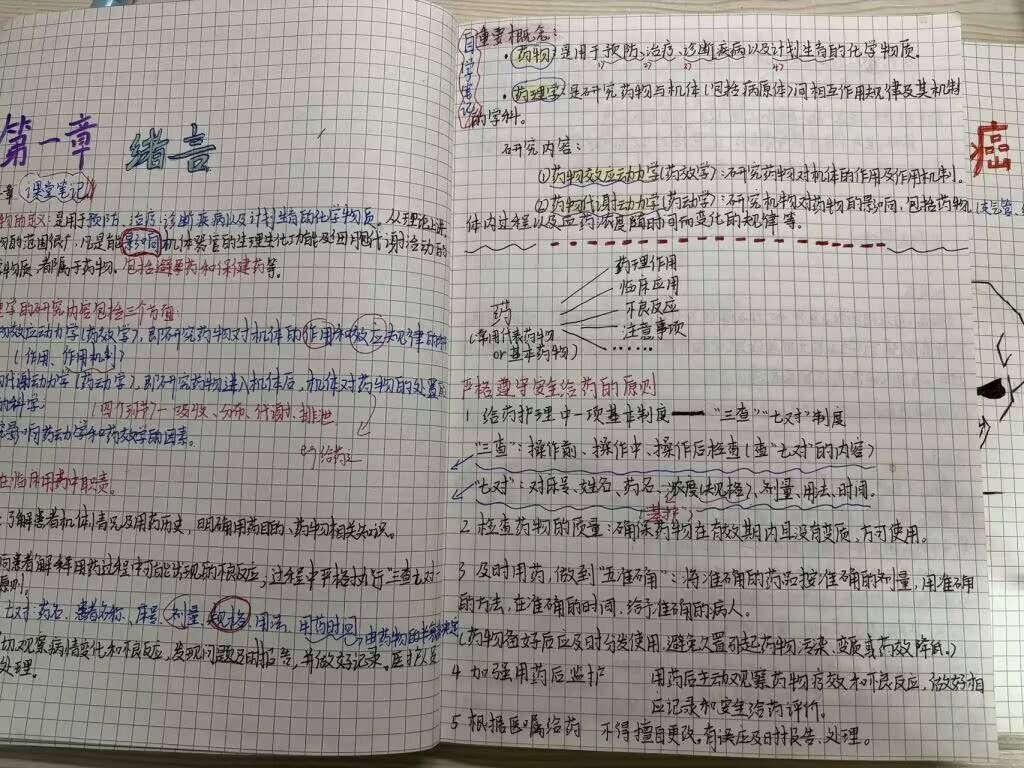 第一章 绪言
课堂笔记
物的定义:是用于预防、治疗、诊断疾病以及计划生育的化学物质。从理论上说
物的范围很广,凡是能影响机体器官的生理生化功能及细胞代谢活动的
物质都属于药物。包括避孕药和保健药等。
理学的研究内容包括三个方面:
物效应动力学(药效学),即研究药物对机体的作用和效应及规律的
(作用、作用机制)
代谢动力学(药动学),即研究药物进入机体后,机体对药物的处置
的科学
(四个环节—吸收、分布、代谢、排泄
影响药动学和药效学的因素。
给药
在临床用药中职责。
了解患者机体情况及用药历史,明确用药目的、药物相关知识。
向患者解释用药过程中可能出现的不良反应,过程中严格执行"三查七对"
原则。
七对:药名、患者名称、床号、剂量、规格、用法、用药时间
切观察病情变化和不良反应,发现问题及时报告,并做好记录。
处理。
自学笔记
重要概念:
·药物:是用于预防、治疗、诊断疾病以及计划生育的化学物质。
1) 2) 3) 4)
·药理学:是研究药物与机体(包括病原体)间相互作用规律及其机制
的学科。
研究内容:
①药物效应动力学(药效学):研究药物对机体的作用及作用机制。
②药物代谢动力学(药动学):研究机体对药物的影响,包括药物
体内过程以及血药浓度随时间而变化的规律等。
药理作用
临床应用
药
不良反应
(常用代表药物
注意事项
or基本药物)
……
严格遵守安全给药的原则
1 给药护理中一项基本制度——"三查""七对"制度
"三查":操作前、操作中、操作后检查(查"七对"的内容)
"七对":对床号、姓名、药名、浓度(规格)、剂量、用法、时间。
2 检查药物的质量:确保药物在有效期内且没有变质,方可使用。
3 及时用药,做到"五准确":将准确的药品按准确的剂量,用准确
的方法,在准确的时间,给予准确的病人。
(药物备好后应及时分发使用,避免久置引起药物污染、变质或药效降低。)
4 加强用药后监护 用药后主动观察药物疗效和不良反应,做好相
应记录和安全给药评价。
5 根据医嘱给药 不得擅自更改,有误应及时报告、处理。
癌